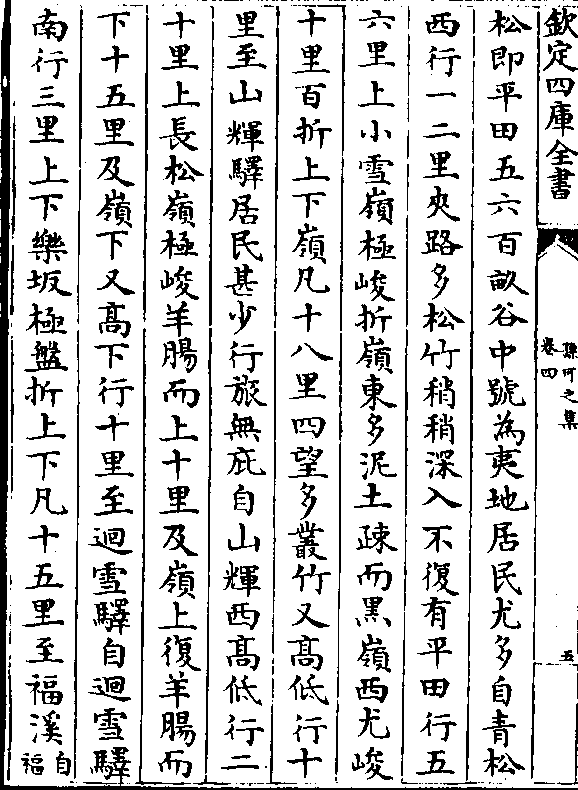 欽定四庫全書
孫可之集
卷四
五
松即平田五六百畝谷中號為夷地居民尤多自青松
西行一二里夾路多松竹稍稍深入不復有平田行五
六里上小雪嶺極峻折嶺東多泥土疎而黑嶺西尤峻
十里百折上下嶺凡十八里四望多叢竹又髙低行十
里至山輝驛居民甚少行旅無庇自山輝西髙低行二
十里上長松嶺極峻羊腸而上十里及嶺上復羊腸而
下十五里及嶺下又髙下行十里至迴雪驛自迴雪驛
南行三里上下樂坂極盤折上下凡十五里至福溪自
福